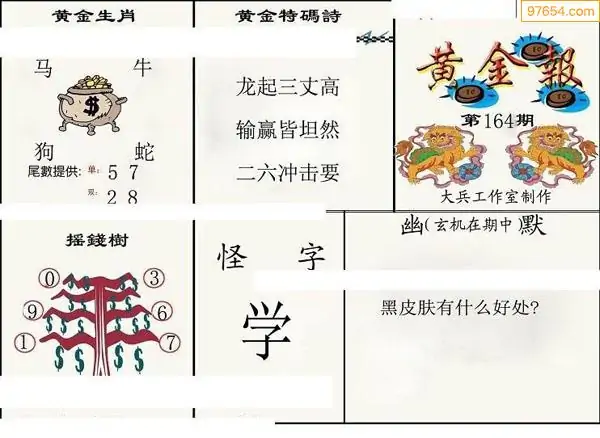 97654.com
黄金生肖
马 牛
$
狗 蛇
尾數提供: 单: 5 7
双: 2 8
黄金特碼詩
龙起三丈高
输赢皆坦然
二六冲击要
黄金報
第164期
大兵工作室制作
摇錢樹
0 3
9 6
1 7
怪 字
学
幽(玄机在期中)默
黑皮肤有什么好处?